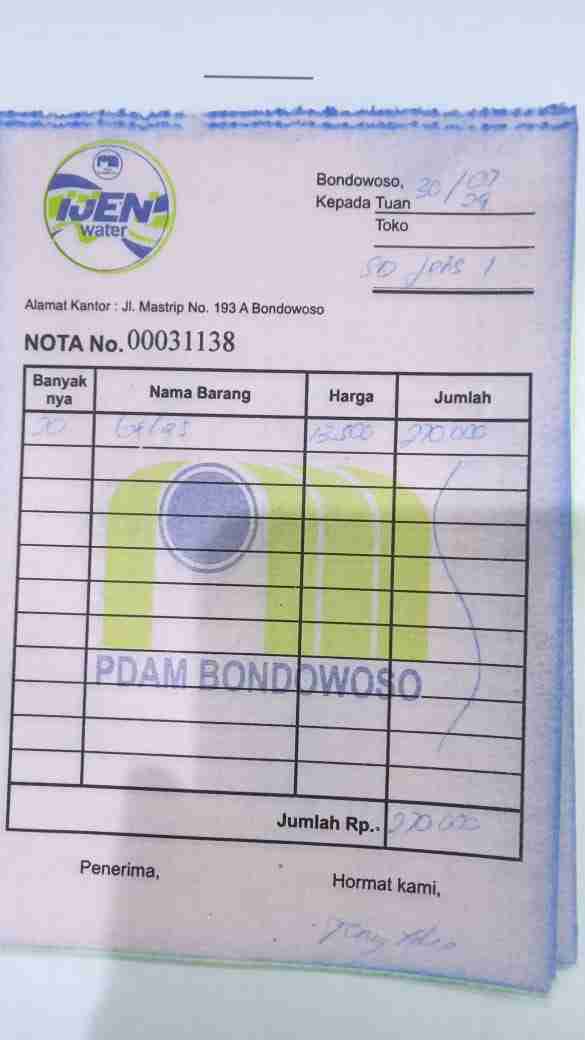 IJEN
water
Bondowoso, 30/07
Kepada Tuan 24
Toko
SD
1
Alamat Kantor : Jl. Mastrip No. 193 A Bondowoso
NOTA No. 00031138
Banyak nya Nama Barang Harga Jumlah
20 Gelas 13.500 270.000
PDAM BONDOWOSO
Jumlah Rp.. 270.000
Penerima,
Hormat kami,